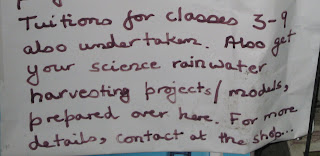 Tuitions for classes 3-9
also undertaken. Also get
your science rainwater
harvesting projects/models,
prepared over here. For more
details, contact at the shop...